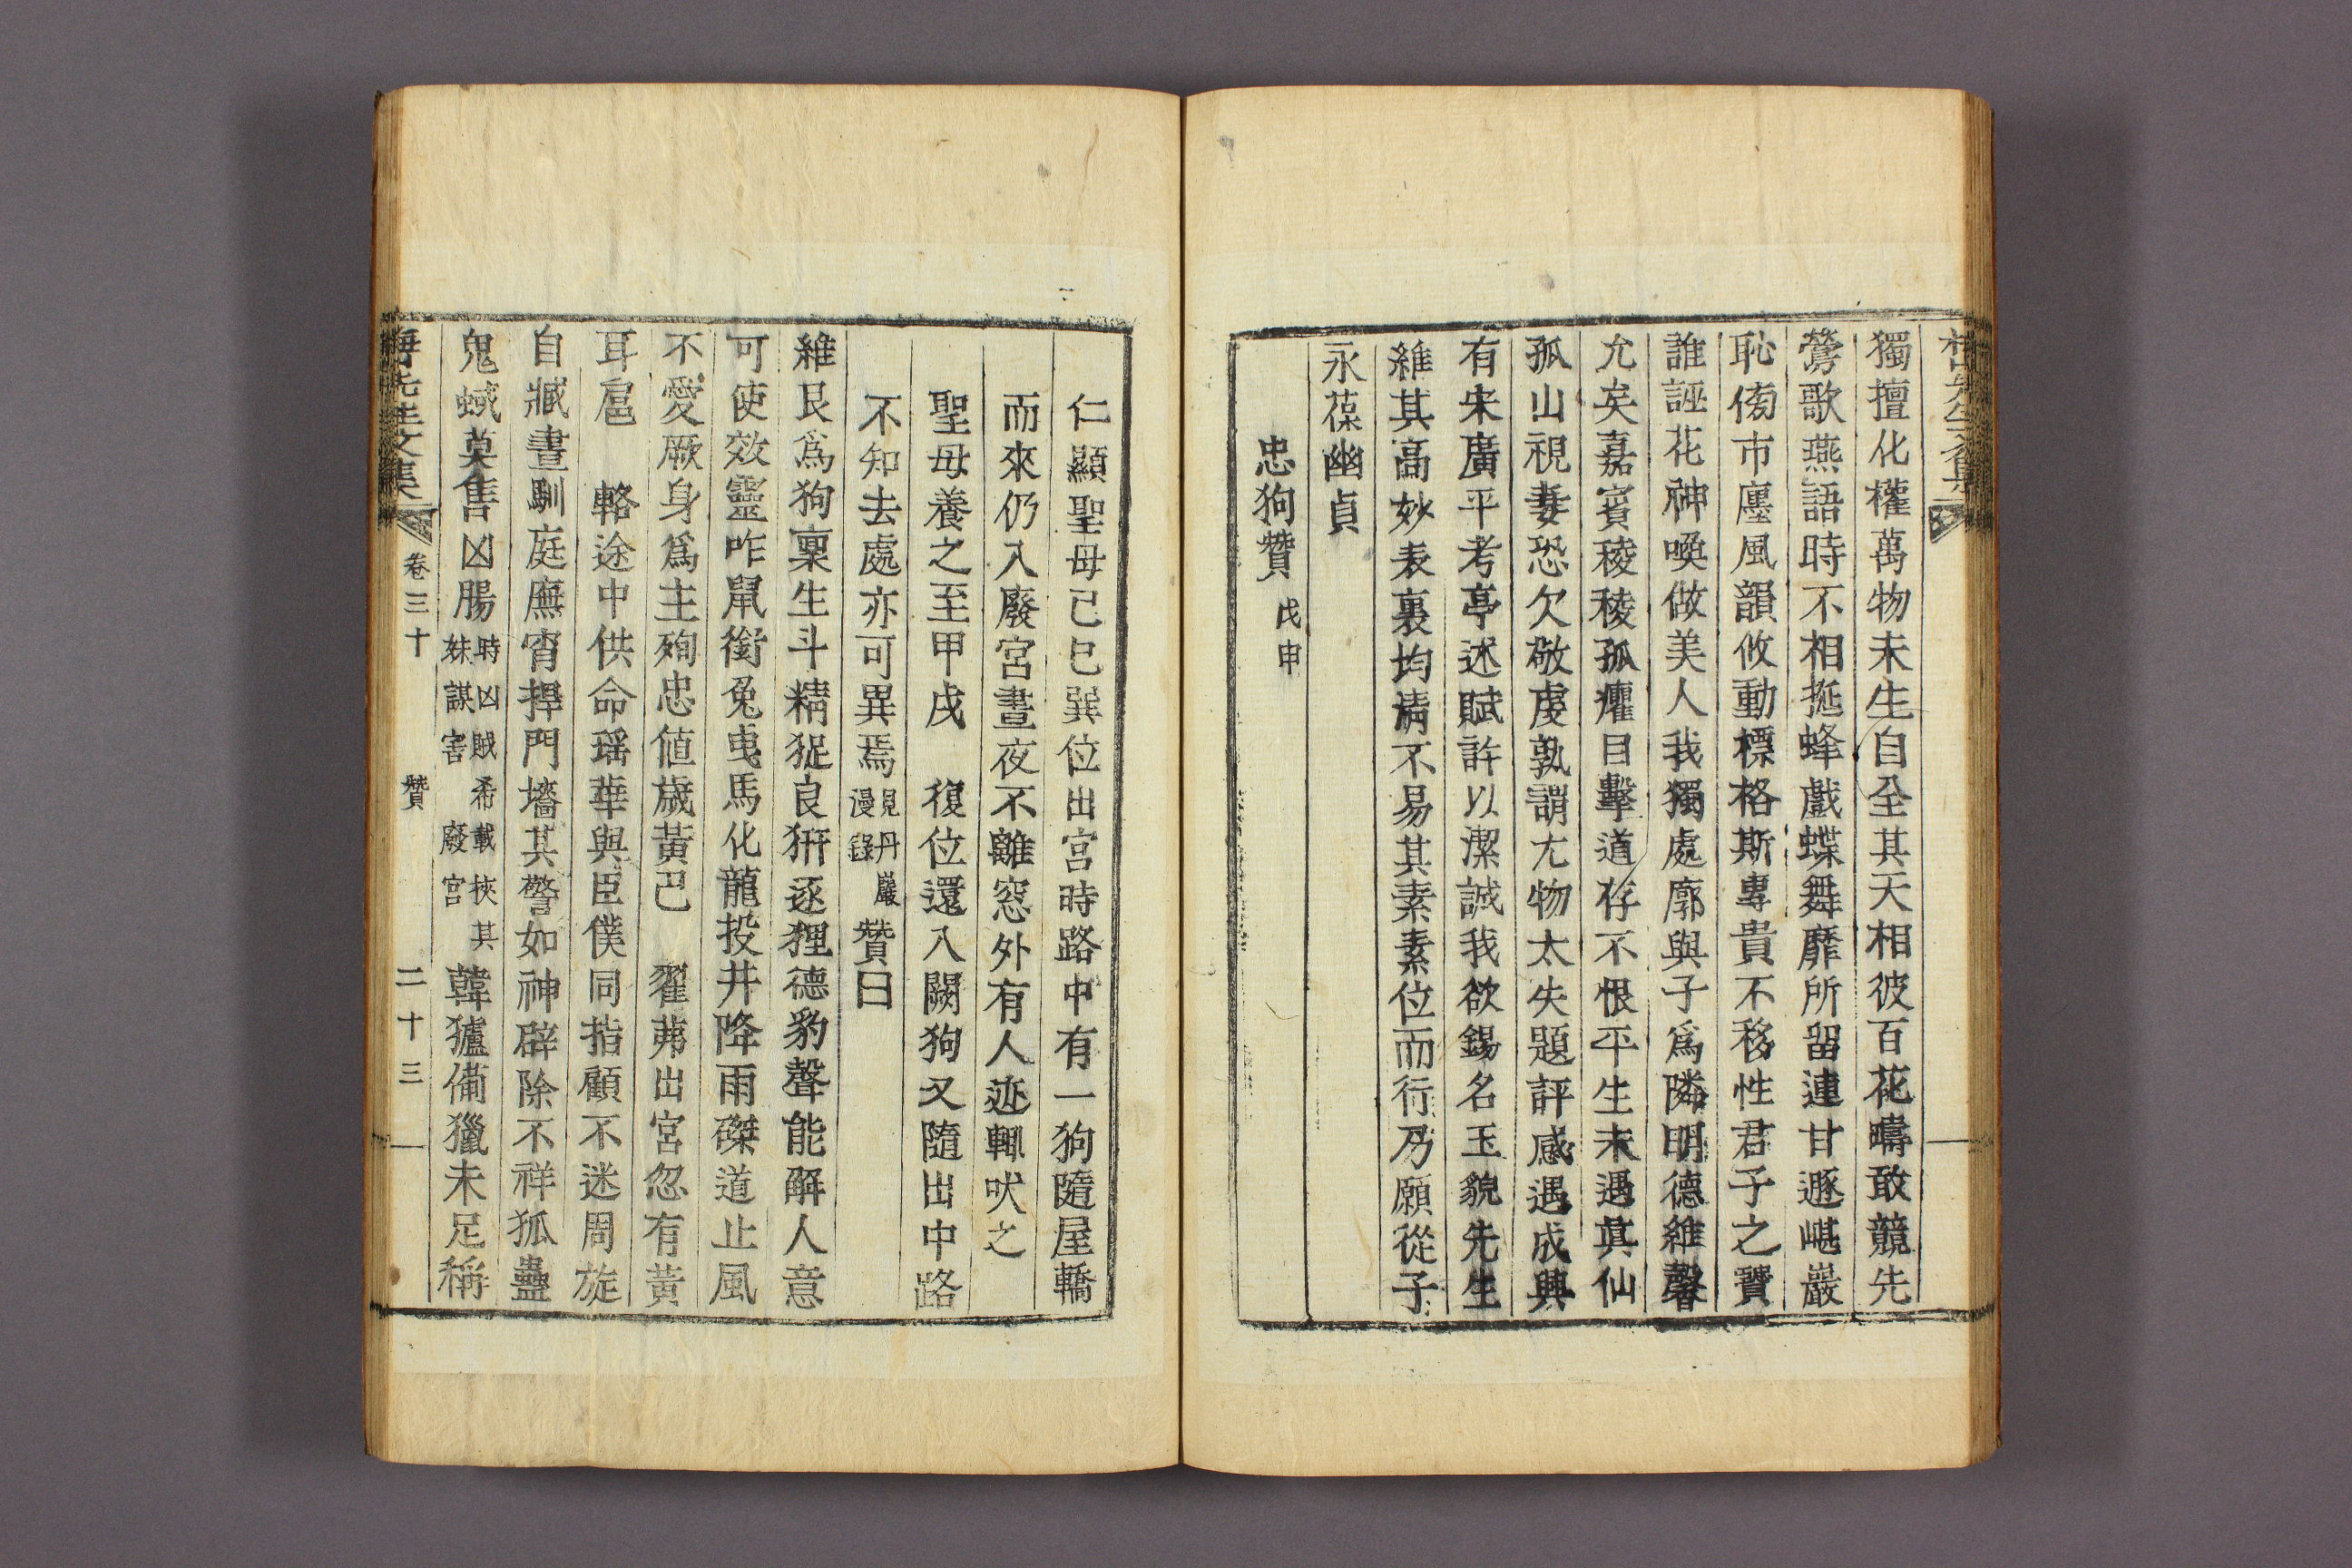 獨擅化權萬物未生自全其天相彼百花疇敢競先
鶯歌燕語時不相挻蜂戲蝶舞靡所留連甘遯嵁巖
恥傍市廛風韻攸動標格斯專貴不移性君子之贒
誰誣花神喚做美人我獨處廓與子爲隣明德維馨
允矣嘉賓稜稜孤癯目擊道存不恨平生未遇眞仙
孤山視妻恐欠敬虔孰謂尤物太失題評感遇成興
有宋廣平考亭述賦許以潔誠我欲錫名玉貌先生
維其高妙表裏均淸不易其素素位而行乃願從子
永葆幽貞
忠狗贊 戊申
仁顯聖母己巳巽位出宮時路中有一狗隨屋轎
而來仍入廢宮晝夜不離窓外有人迹輒吠之
聖母養之至甲戌 復位還入闕狗又隨出中路
不知去處亦可異焉 見丹巖漫錄 贊曰
維艮爲狗稟生斗精猊良豜逐狸德豹聲能解人意
可使效靈咋鼠銜兔曳馬化龍投井降雨磔道止風
不愛厥身爲主殉忠値歲黃巳 翟茀出宮忽有黃
耳扈 輅途中供命瑤華與臣僕同指顧不迷周旋
自臧晝馴庭廡宵捍門墻其警如神辟除不祥狐蠱
鬼蜮莫售凶腸 時凶賊希載挾其妹謀害廢宮 韓獹備獵未足稱
先生文集 卷三十 贊 二十三